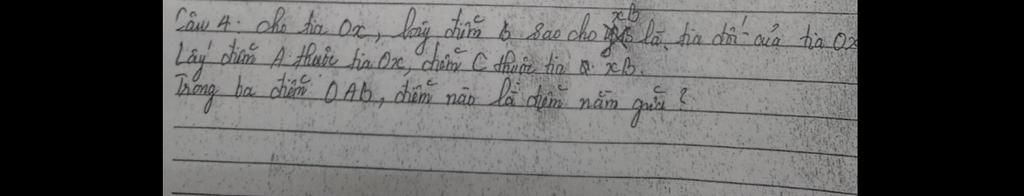 Câu 4: cho tia Ox, lấy điểm B sao cho xB là tia đối của tia Ox
Lấy điểm A thuộc tia Ox, điểm C thuộc tia xB.
Trong ba điểm OAB, điểm nào là điểm nằm giữa ?